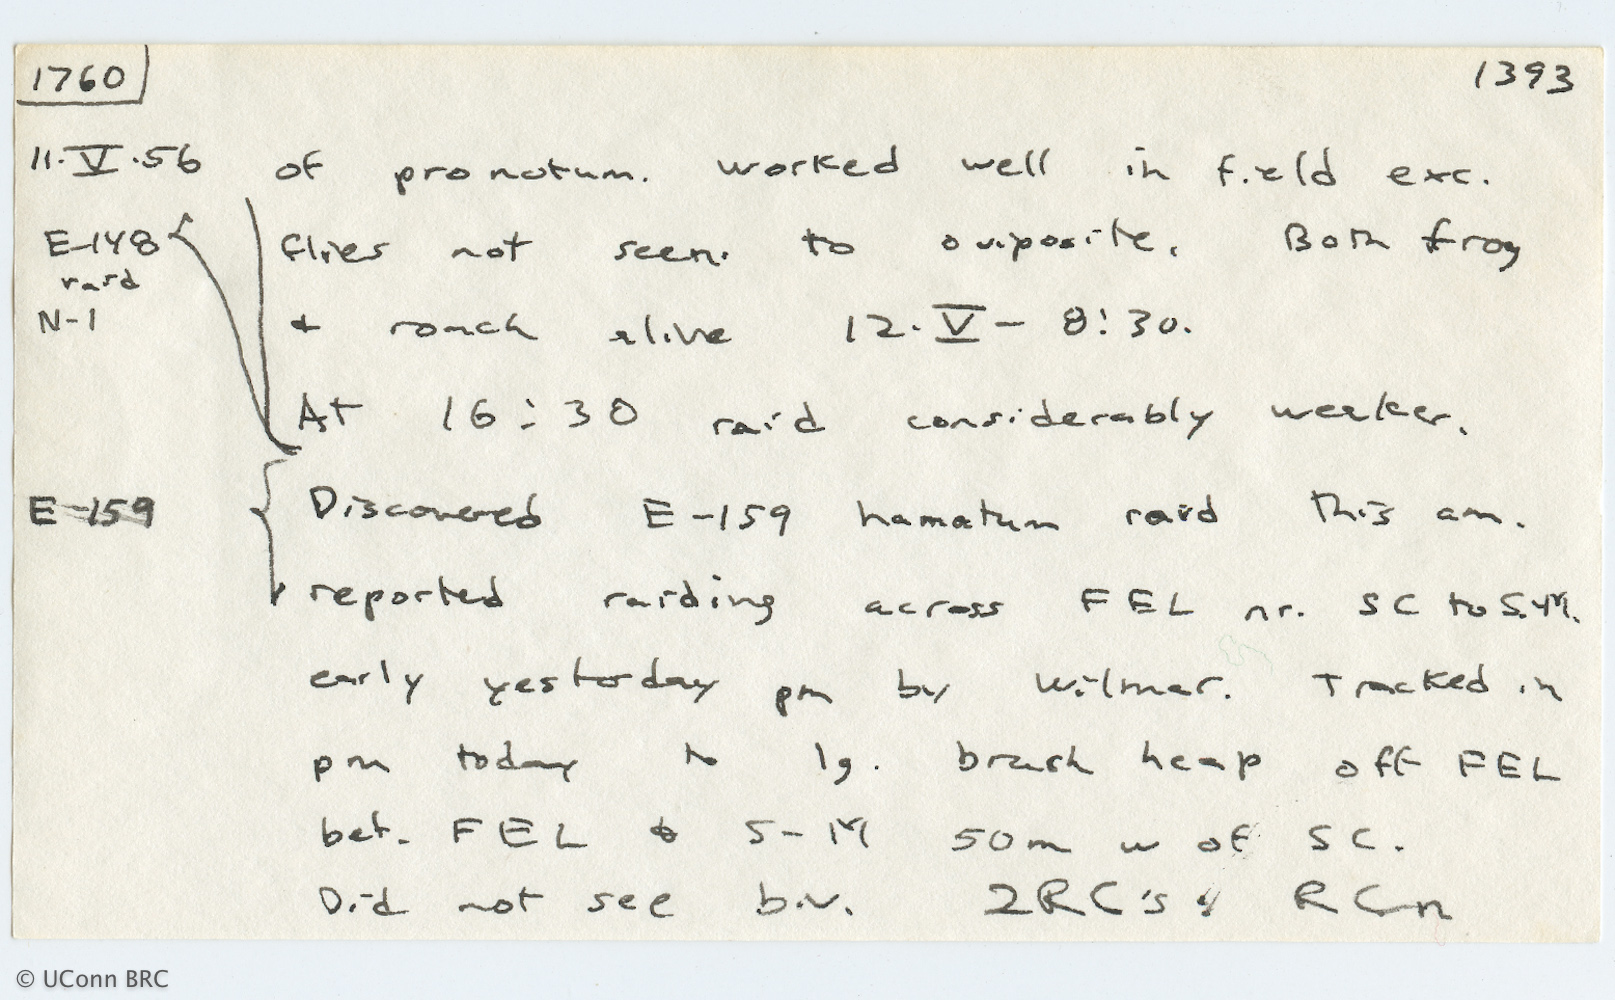 1760
1393
11·V·56 of pronotum. worked well in field exc.
E-148 flies not seen to oviposite. Both frog
raid
N-1 + roach alive 12·V- 8:30.
At 16:30 raid considerably weaker.
E-159 Discovered E-159 hamatum raid this am.
reported raiding across FEL nr. SC to S.M.
early yesterday pm by Wilmar. Tracked in
pm today to lg. brush heap off FEL
bet. FEL & S-M 50m w of SC.
Did not see biv. 2RC's RC
© UConn BRC